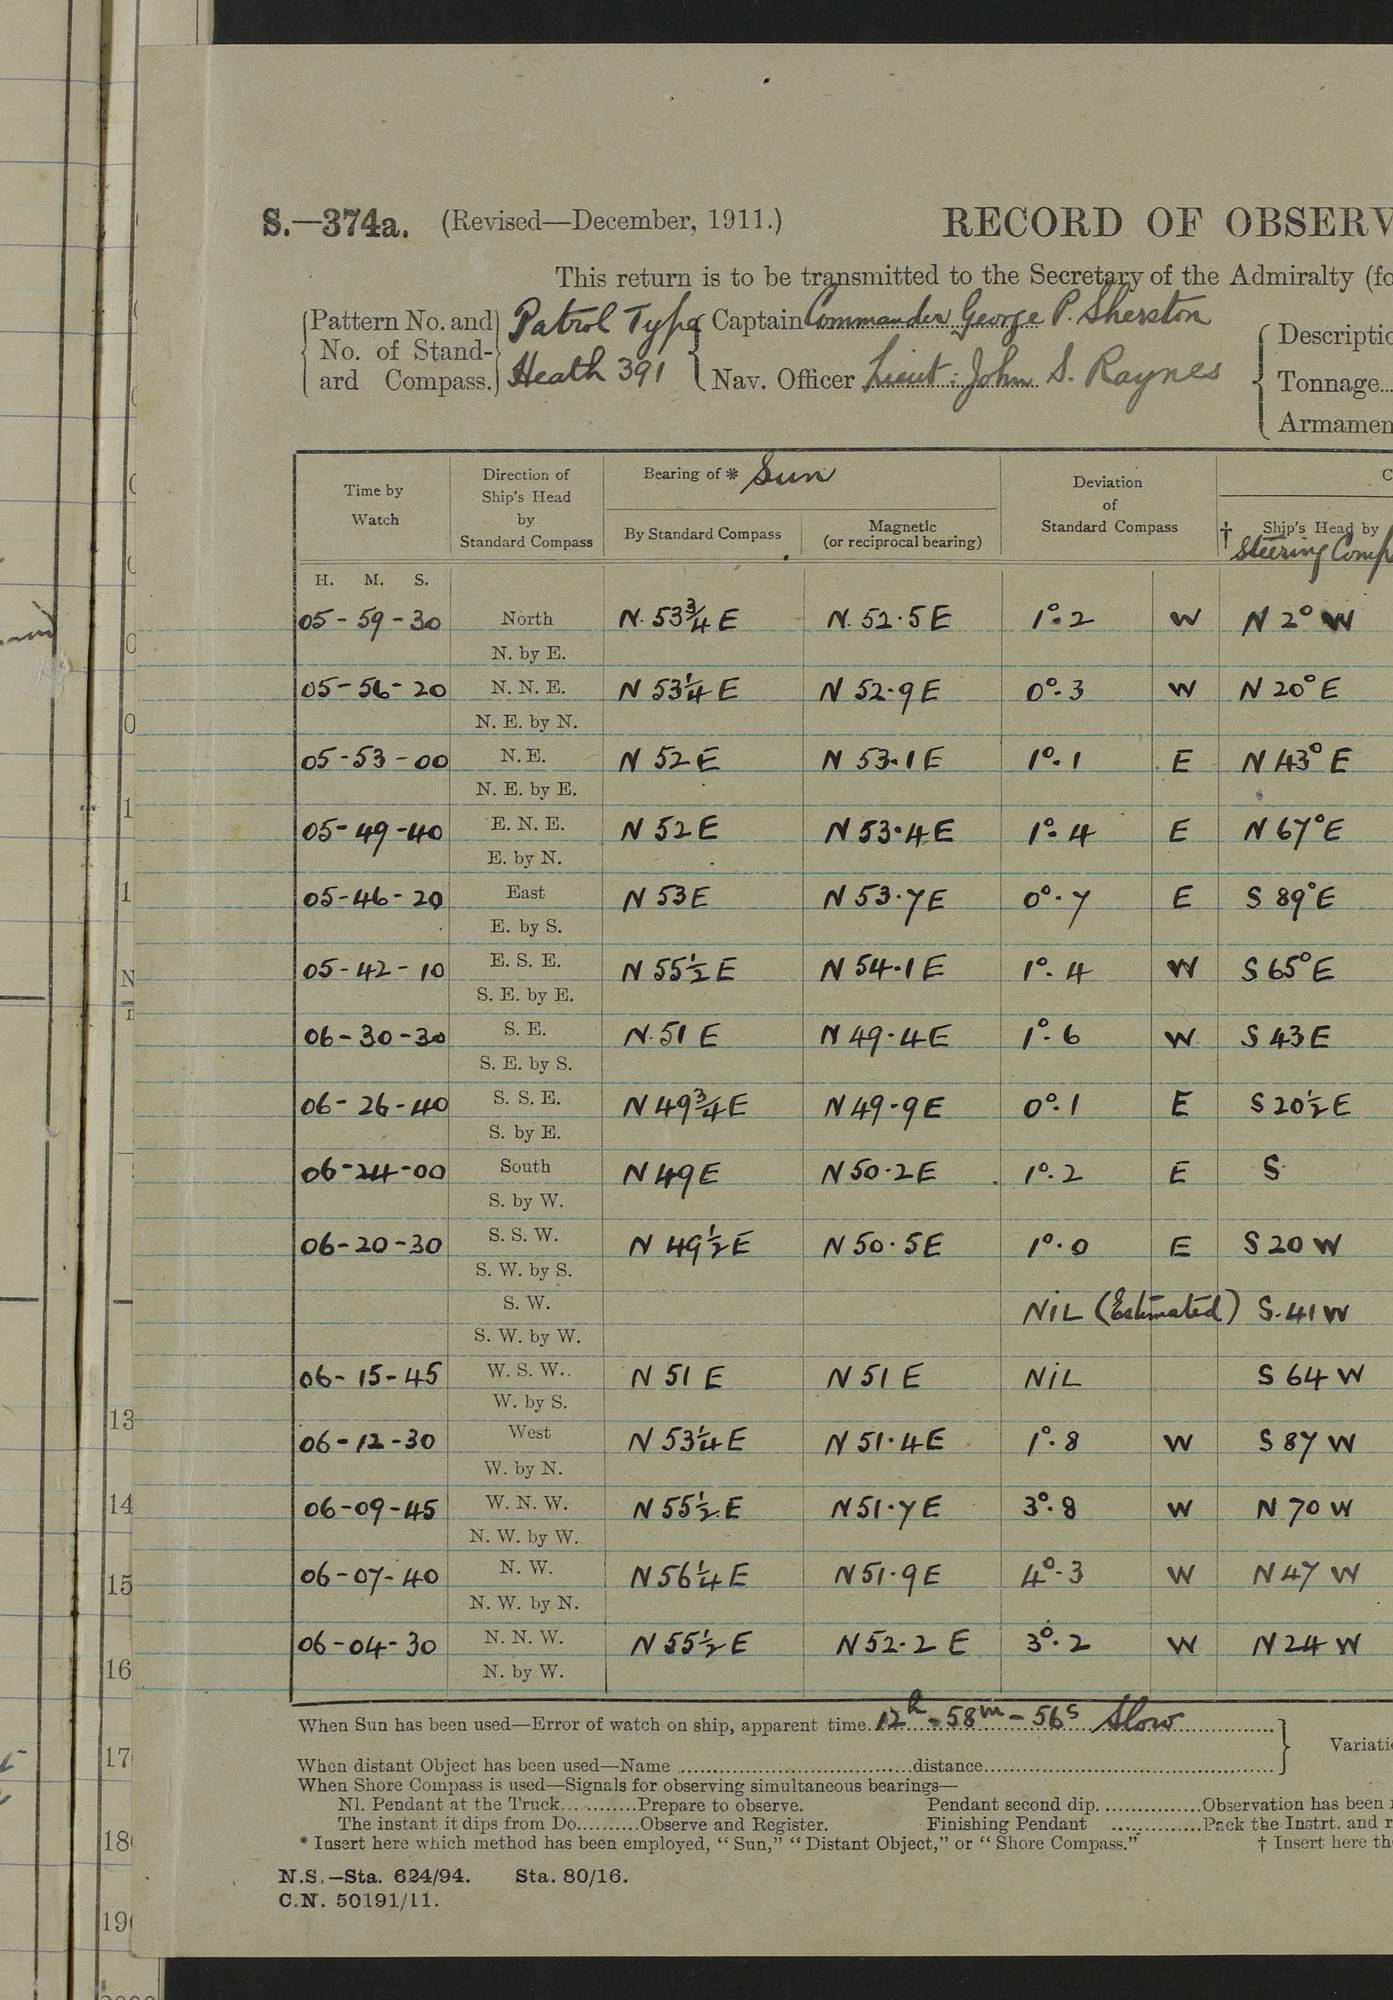 S.—374a. (Revised—December, 1911.) RECORD OF OBSERV
This return is to be transmitted to the Secretary of the Admiralty (fo
Pattern No. and Patrol Type Captain Commander George P. Sherston
No. of Stand- Descriptio
ard Compass. Heath 391 Nav. Officer Lieut: John S. Raynes Tonnage
Armamen
Time by Watch
Direction of Ship's Head by Standard Compass
Bearing of * Sun
By Standard Compass
Magnetic (or reciprocal bearing)
Deviation of Standard Compass
C
† Ship's Head by Steering Comp
H. M. S.
05-59-30 North N. 53¾ E N. 52.5 E 1°.2 W N 2° W
N. by E.
05-56-20 N. N. E. N 53¼ E N 52.9 E 0°.3 W N 20° E
N. E. by N.
05-53-00 N. E. N 52 E N 53.1 E 1°.1 E N 43° E
N. E. by E.
05-49-40 E. N. E. N 52 E N 53.4 E 1°.4 E N 67° E
E. by N.
05-46-20 East N 53 E N 53.7 E 0°.7 E S 89° E
E. by S.
05-42-10 E. S. E. N 55½ E N 54.1 E 1°.4 W S 65° E
S. E. by E.
06-30-30 S. E. N. 51 E N 49.4 E 1°.6 W S 43 E
S. E. by S.
06-26-40 S. S. E. N 49¾ E N 49.9 E 0°.1 E S 20½ E
S. by E.
06-24-00 South N 49 E N 50.2 E 1°.2 E S
S. by W.
06-20-30 S. S. W. N 49½ E N 50.5 E 1°.0 E S 20 W
S. W. by S.
S. W. NiL (Estimated) S. 41 W
S. W. by W.
06-15-45 W. S. W. N 51 E N 51 E NiL S 64 W
W. by S.
06-12-30 West N 53¼ E N 51.4 E 1°.8 W S 87 W
W. by N.
06-09-45 W. N. W. N 55½ E N 51.7 E 3°.8 W N 70 W
N. W. by W.
06-07-40 N. W. N 56¼ E N 51.9 E 4°.3 W N 47 W
N. W. by N.
06-04-30 N. N. W. N 55½ E N 52.2 E 3°.2 W N 24 W
N. by W.
When Sun has been used—Error of watch on ship, apparent time. 12h-58m-56s Slow
Variati
When distant Object has been used—Name distance
When Shore Compass is used—Signals for observing simultaneous bearings—
Nl. Pendant at the Truck Prepare to observe. Pendant second dip. Observation has been
The instant it dips from Do. Observe and Register. Finishing Pendant Pack the Instrt. and r
* Insert here which method has been employed, "Sun," "Distant Object," or "Shore Compass." † Insert here th
N.S.—Sta. 624/94. Sta. 80/16.
C.N. 50191/11.
13
14
15
16
17
18
19